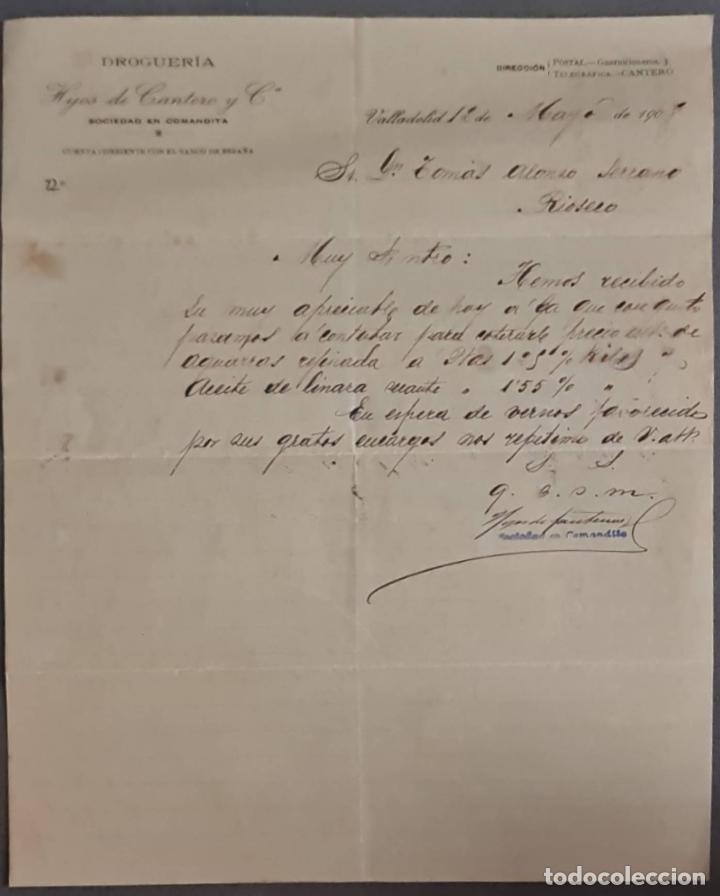 DROGUERÍA
Hijos de Cantero y Cª
SOCIEDAD EN COMANDITA
CUENTA CORRIENTE CON EL BANCO DE ESPAÑA
DIRECCIÓN POSTAL.— 3
TELEGRÁFICA.—CANTERO
Valladolid 12 de Mayo de 190
Sr. Dn Tomás Alonso Serrano
Rioseco
Muy Sr. ntro:
Hemos recibido
Su muy apreciable de hoy a la que con gusto
pasamos a contestar para cotizarle precio de
aguarras refinada a Ptas % Kilos
Aceite de linaza 1'55 % "
En espera de vernos favorecidos
por sus gratos encargos nos repetimos de V. att.
S. S.
q. b. s. m.
Hijos de Cantero
Sociedad en Comandita
todocoleccion.net